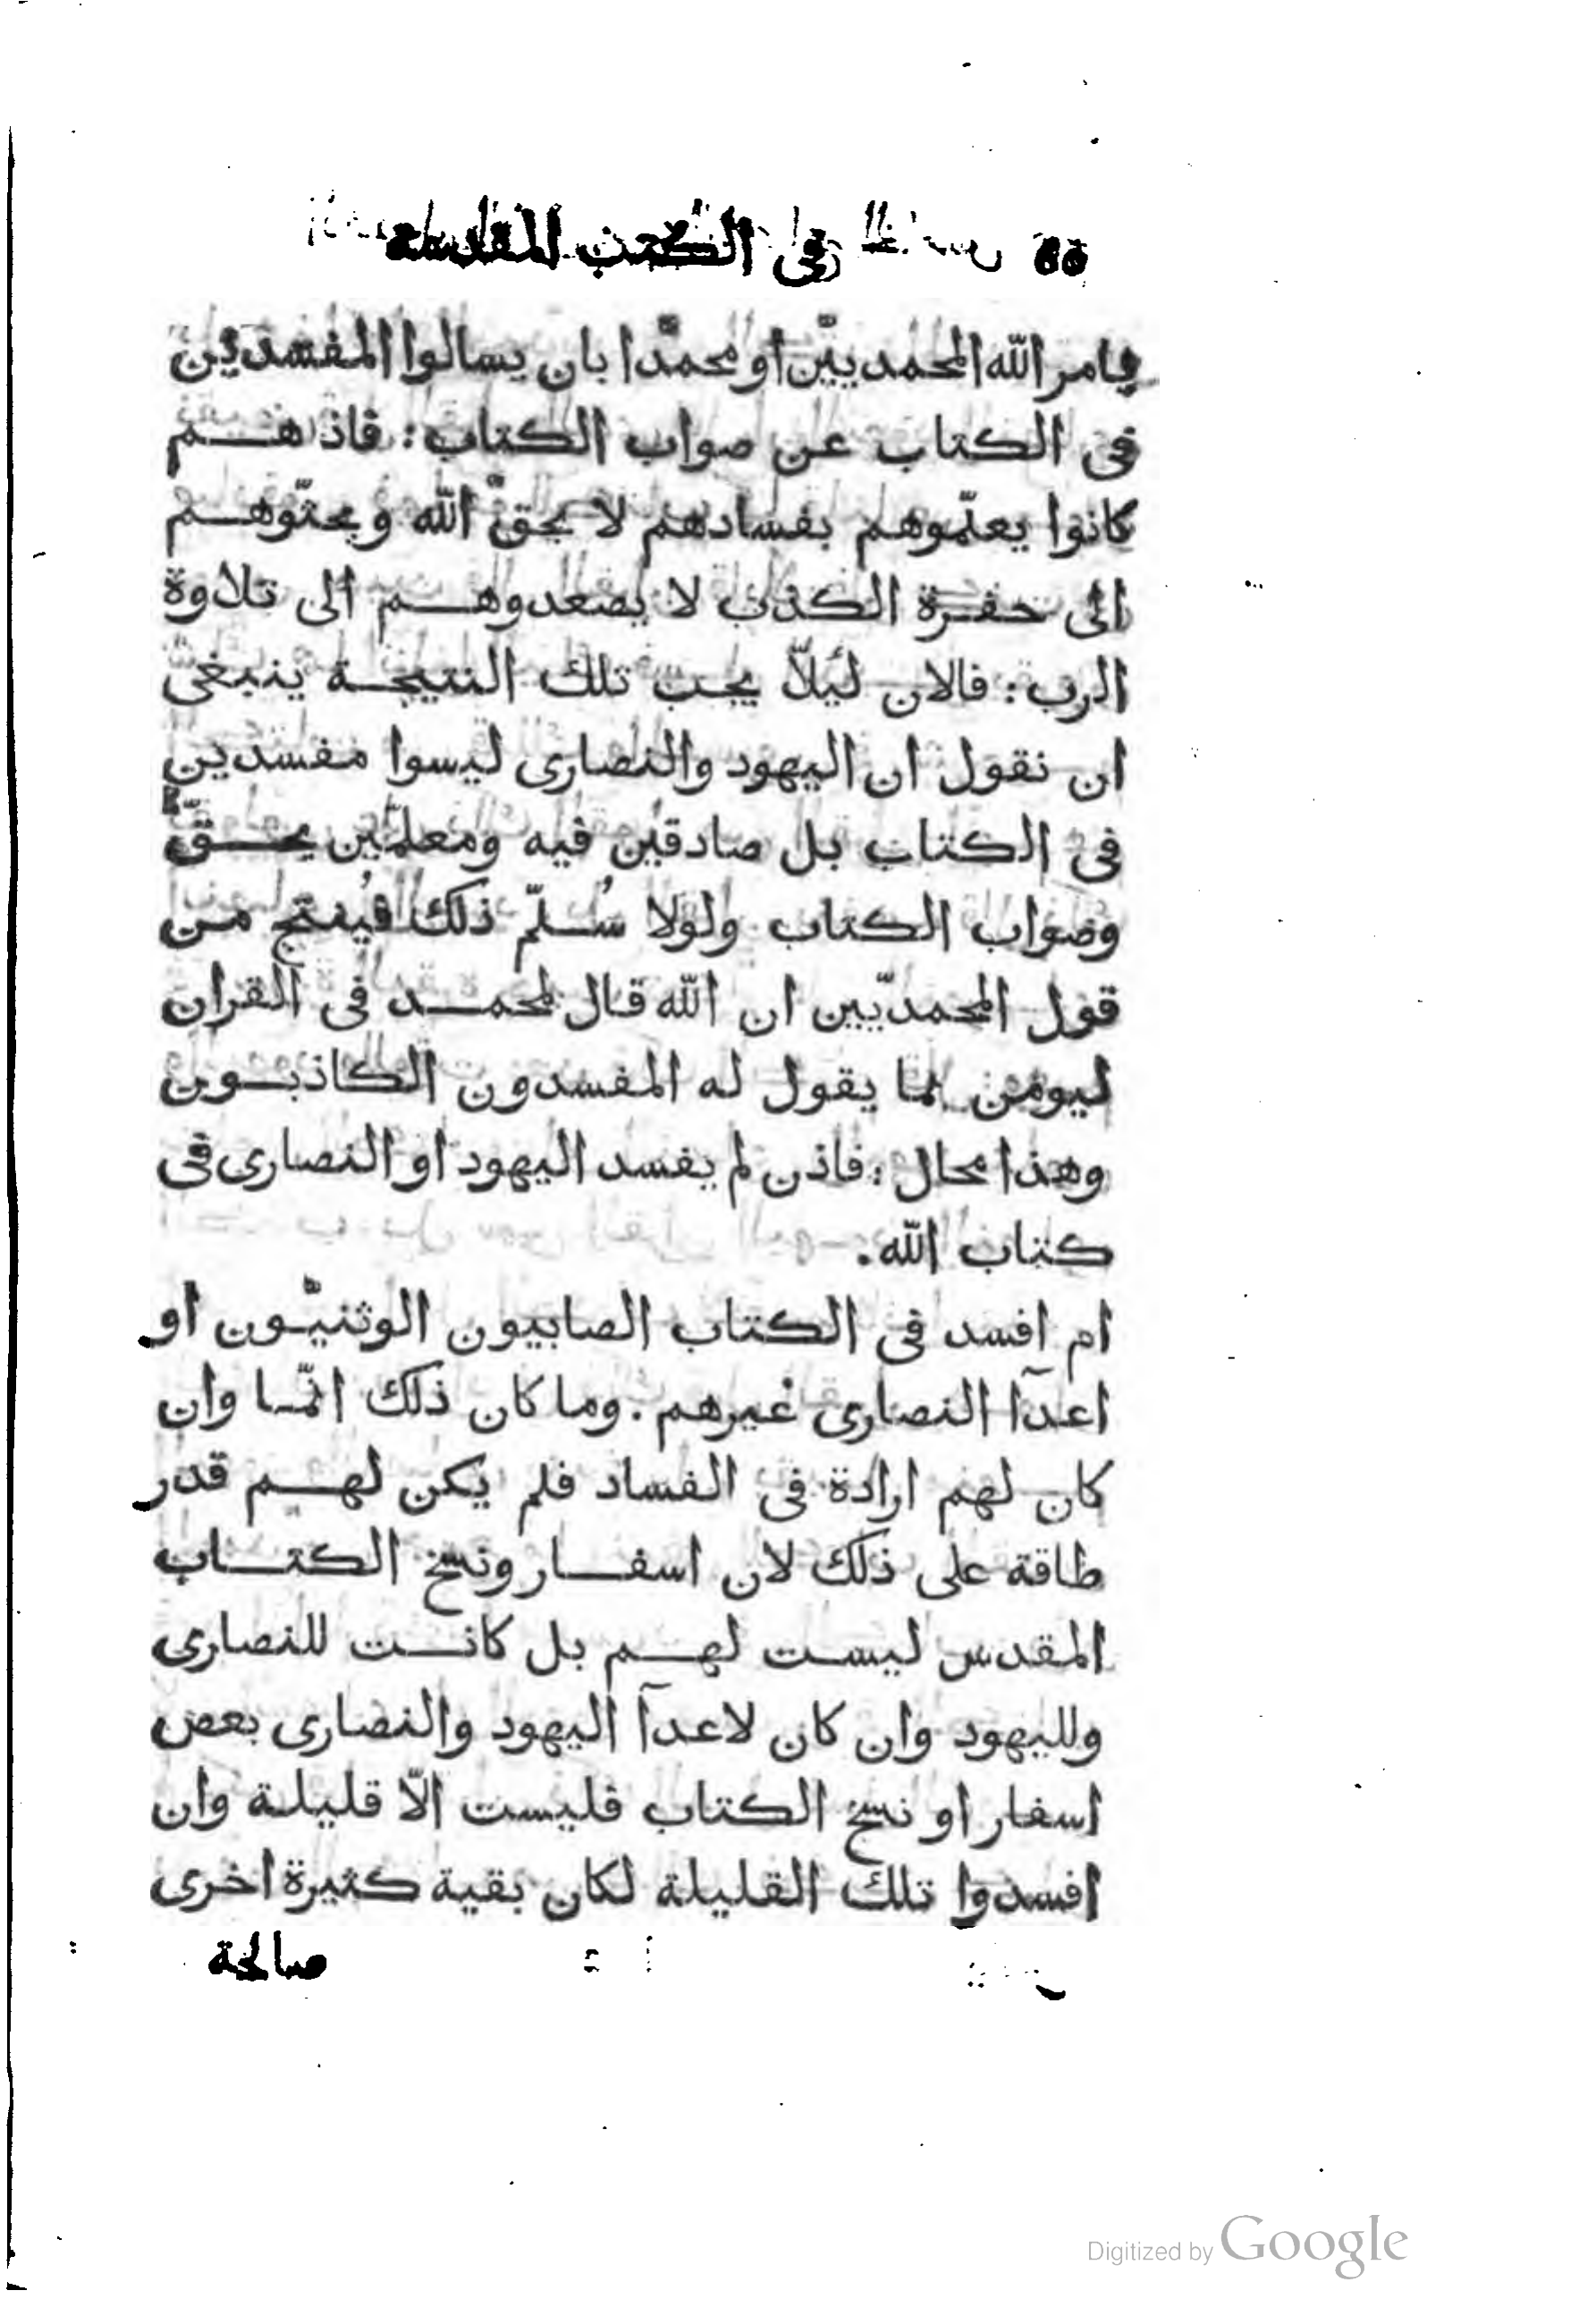 في الكتب المقدسة
يامر اللّه المحمديّين او محمّدا بان يسالوا المفسدين
فى الكتاب عن صواب الكتاب: فاذ هم
كانوا يعلّموهم بفسادهم لا بحقّ اللّه ويحتّوهم
الى حفرة الكذب لا يصعدوهم الى تلاوة
الرب: فالان ليَلاّ يجب تلك النتيجة ينبغى
ان نقول ان اليهود والنصارى ليسوا مفسدين
فى الكتاب بل صادقين فيه ومعلمّين بحقّ
وصواب الكتاب ولولا سُلّم ذلك فيُنتج من
قول المحمديّين ان اللّه قال لمحمد فى القران
ليومن بما يقول له المفسدون الكاذبون
وهذا محال: فاذن لم يفسد اليهود او النصارى فى
كتاب اللّه.
ام افسد فى الكتاب الصابيون الوثنيّون او
اعدآ النصارى غيرهم. وما كان ذلك انمّا وان
كان لهم ارادة فى الفساد فلم يكن لهم قدر
طاقة على ذلك لان اسفار ونسخ الكتاب
المقدس ليست لهم بل كانت للنصارى
ولليهود وان كان لاعدآ اليهود والنصارى بعض
اسفار او نسخ الكتاب فليست الاّ قليلة وان
افسدوا تلك القليلة لكان بقية كثيرة اخرى
صالحة
Digitized by Google